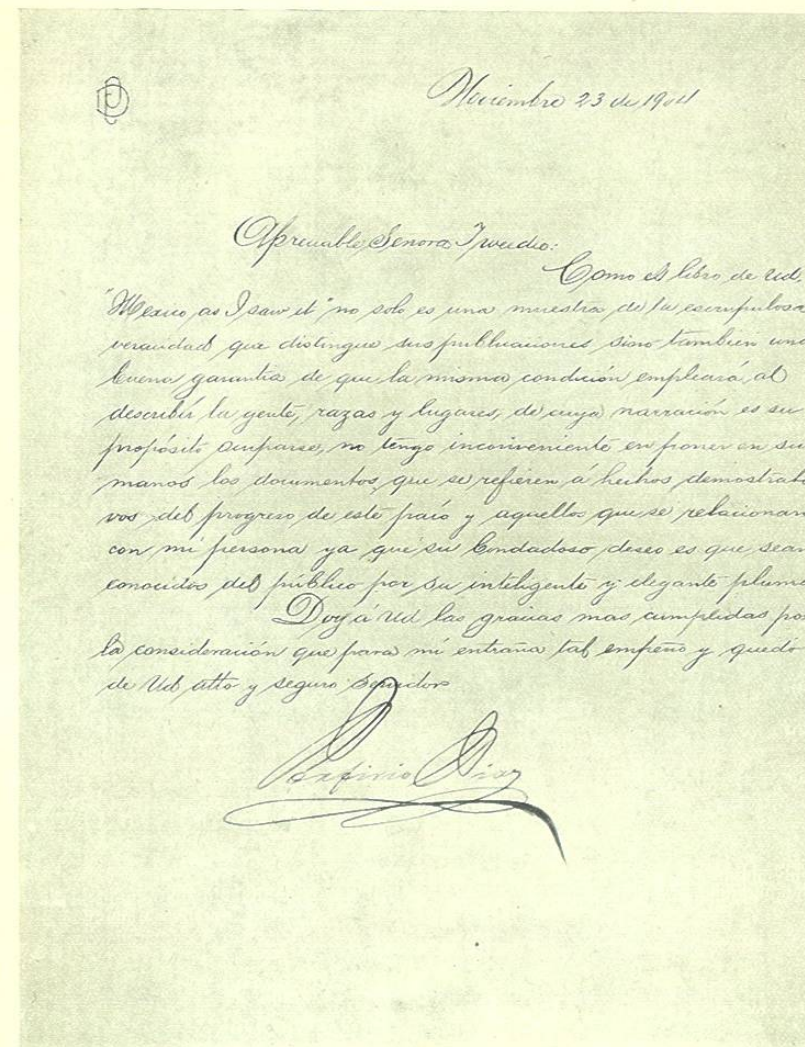 Noviembre 23 de 1904
Apreciable Senora Tweedie:
Como el libro de Ud,
"Mexico as I saw it" no solo es una muestra de la escrupulosa
veracidad que distingue sus publicaciones sino tambien una
buena garantia de que la misma condición empleará, al
describir la gente, razas y lugares, de cuya narración es su
propósito ocuparse, no tengo inconveniente en poner en sus
manos los documentos, que se refieren á hechos demostrati
vos del progreso de este país y aquellos que se relacionan
con mi persona ya que su bondadoso deseo es que sean
conocidos del público por su inteligente y elegante pluma
Doy á Ud las gracias mas cumplidas por
la consideración que para mi entraña tal empeño y quedo
de Ud atto y seguro servidor
Porfirio Diaz